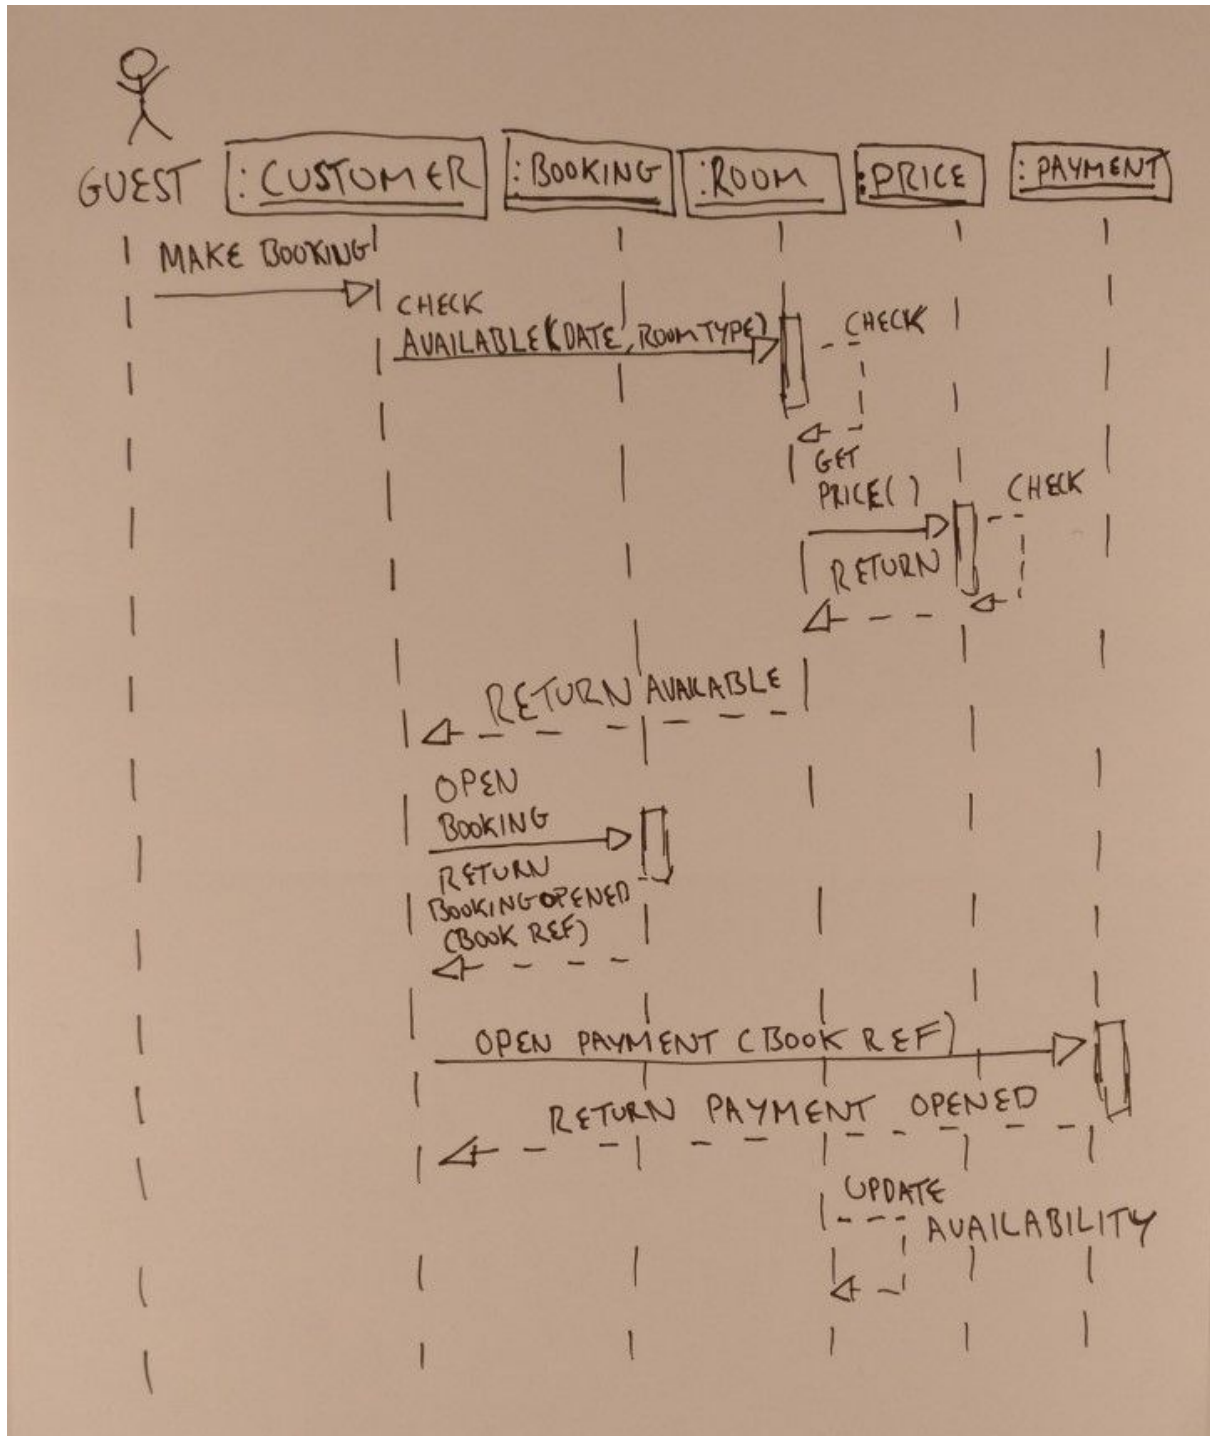 GUEST
:CUSTOMER
:BOOKING
:ROOM
:PRICE
:PAYMENT
MAKE BOOKING
CHECK
AVAILABLE(DATE, ROOMTYPE)
CHECK
GET
PRICE()
CHECK
RETURN
RETURN AVAILABLE
OPEN
BOOKING
RETURN
BOOKINGOPENED
(BOOK REF)
OPEN PAYMENT (BOOK REF)
RETURN PAYMENT OPENED
UPDATE
AVAILABILITY